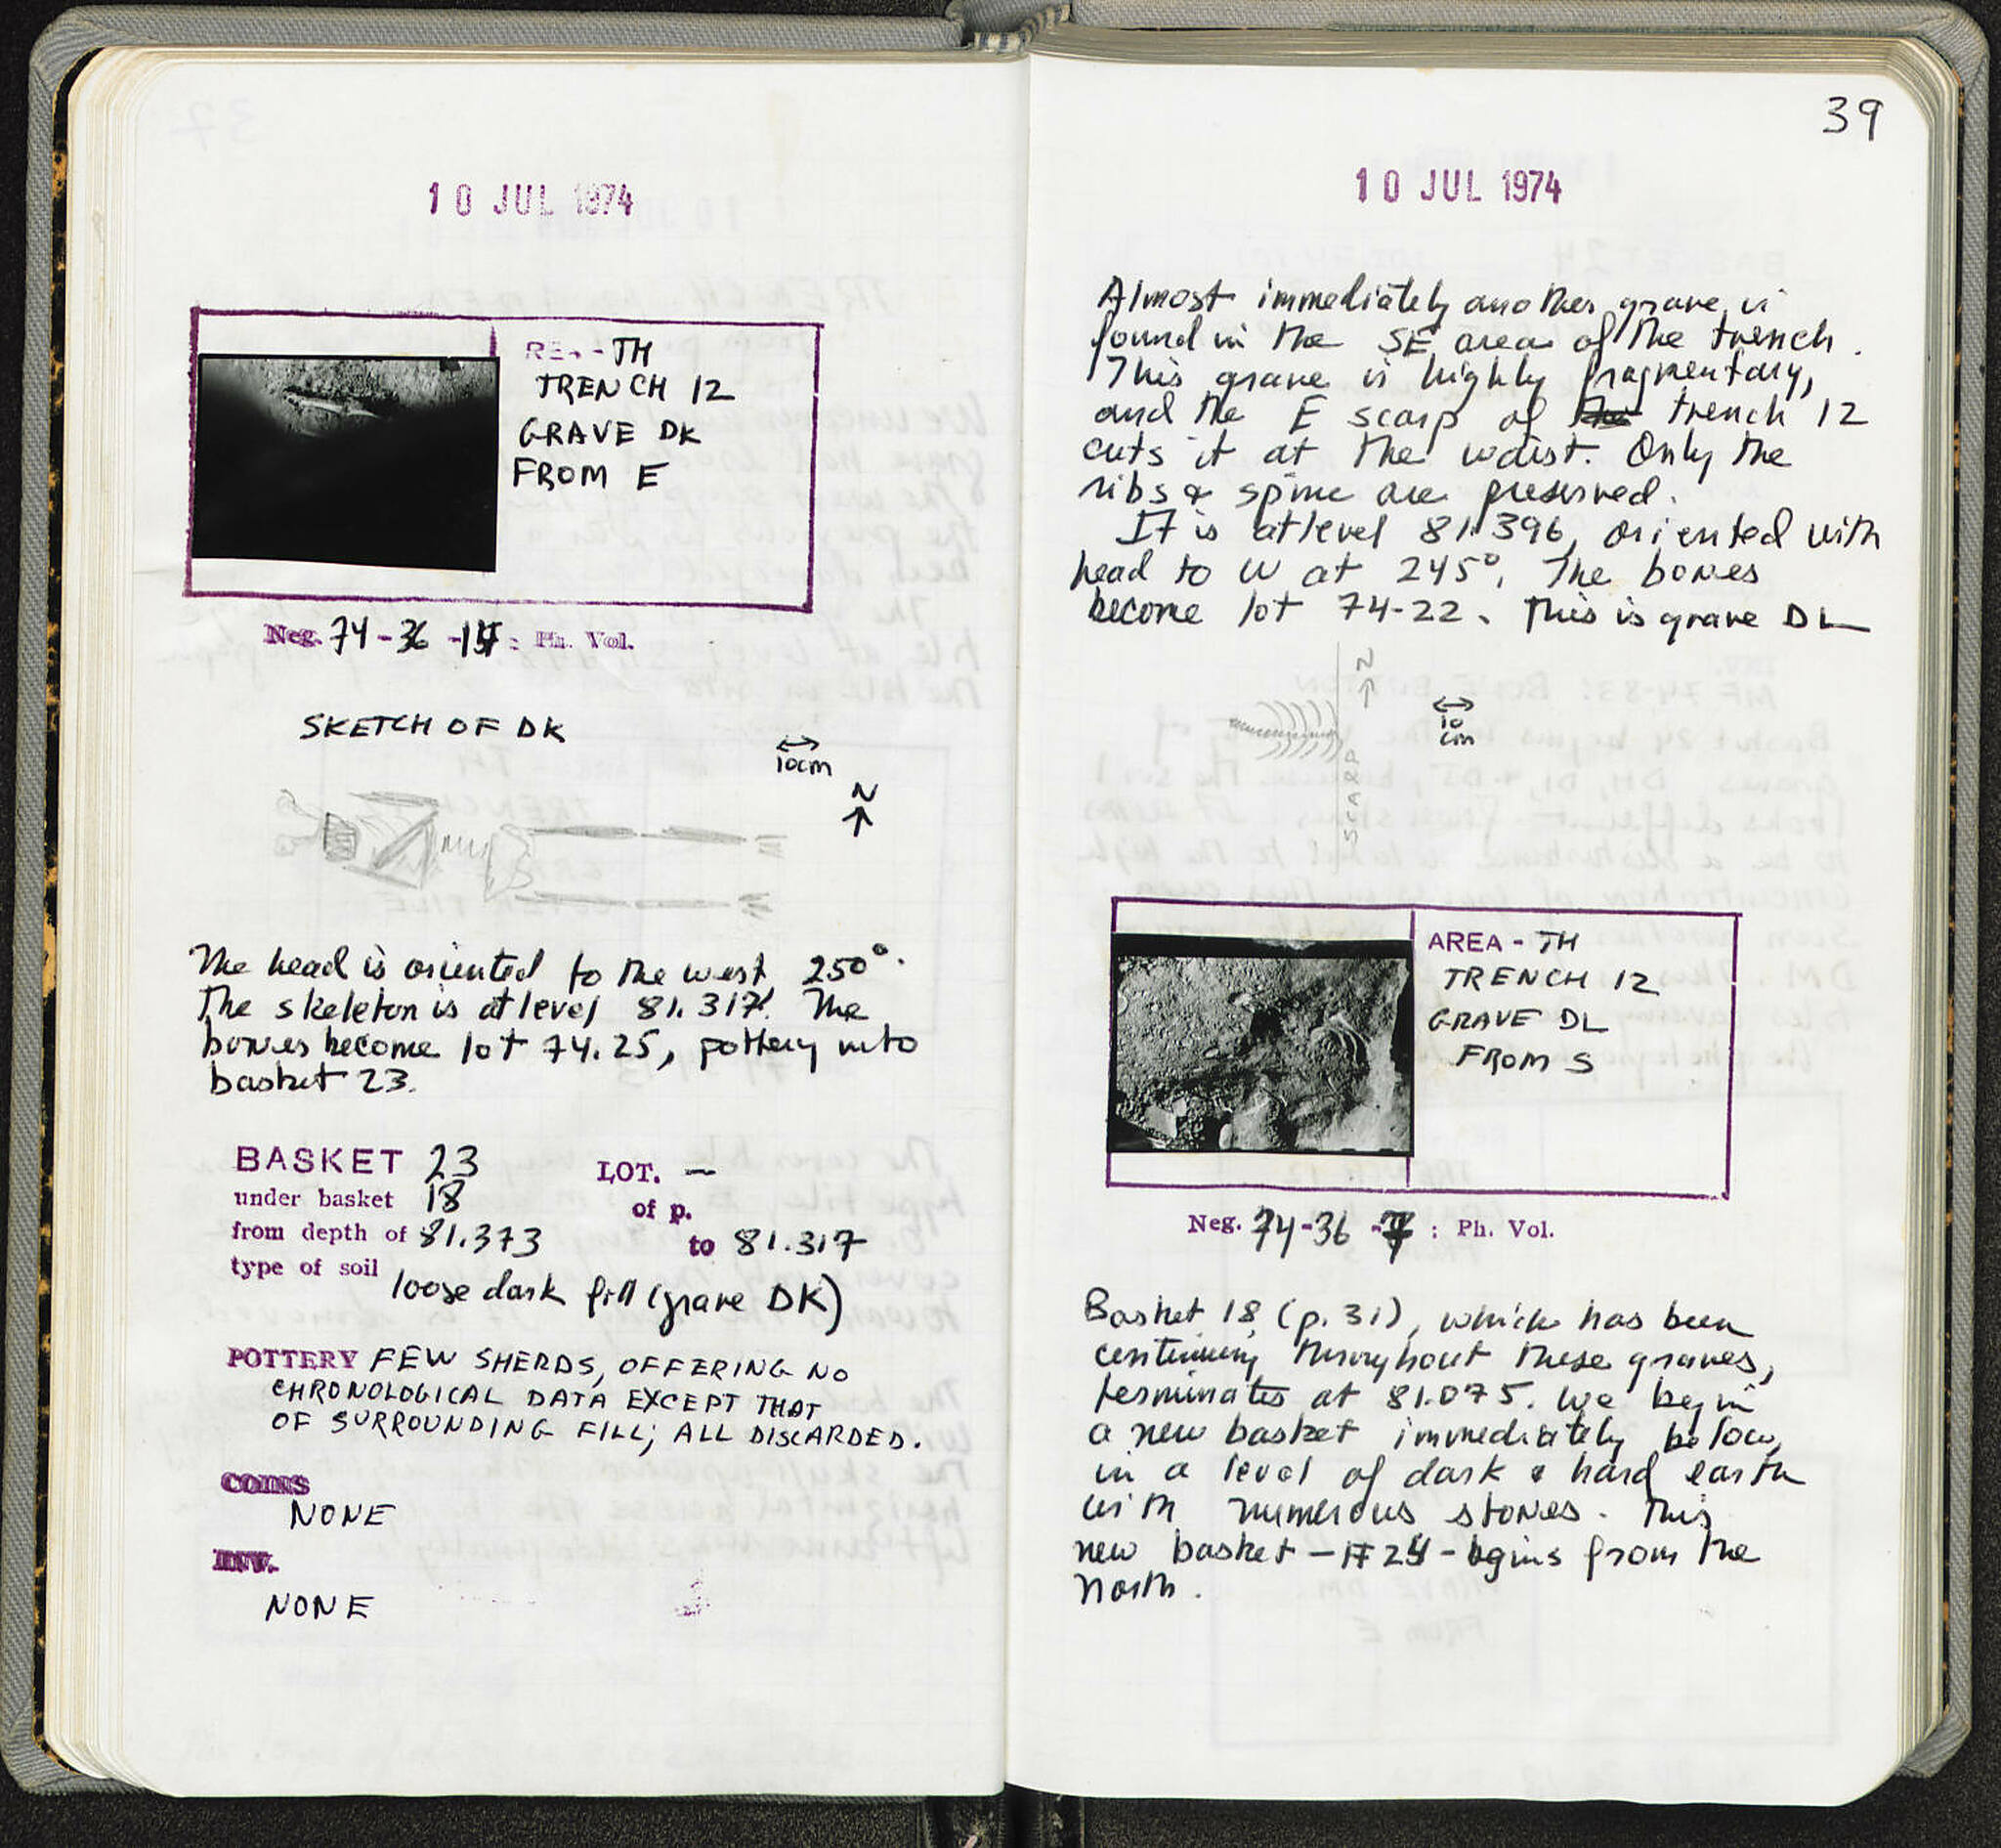 10 JUL 1974
TH
TRENCH 12
GRAVE DK
FROM E
Neg. 74-36 : Ph. Vol.
SKETCH OF DK
10cm
N
The head is oriented to the west, 250°.
The skeleton is at level 81.317. The
bones become lot 74.25, pottery into
basket 23.
BASKET 23 LOT. —
under basket 18 of p.
from depth of 81.373 to 81.317
type of soil loose dark fill (grave DK)
POTTERY FEW SHERDS, OFFERING NO
CHRONOLOGICAL DATA EXCEPT THAT
OF SURROUNDING FILL; ALL DISCARDED.
COINS
NONE
INV.
NONE
39
10 JUL 1974
Almost immediately another grave is
found in the SE area of the trench.
This grave is highly fragmentary,
and the E scarp of trench 12
cuts it at the waist. Only the
ribs & spine are preserved.
It is at level 81.396, oriented with
head to W at 245°. The bones
become lot 74-22. This is grave DL
N
10
cm
SCARP
AREA - TH
TRENCH 12
GRAVE DL
FROM S
Neg. 74-36 : Ph. Vol.
Basket 18 (p. 31), which has been
continuing throughout these graves,
terminates at 81.075. We begin
a new basket immediately below,
in a level of dark & hard earth
with numerous stones. This
new basket - # 24 - bgins from the
north.